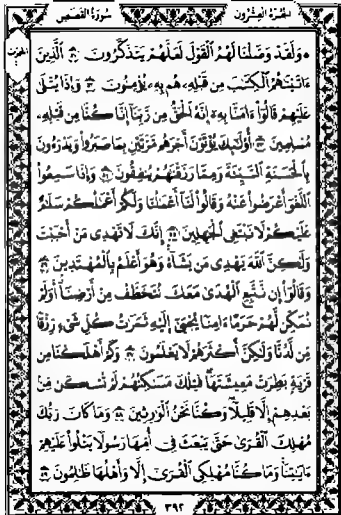 الجزء العشرون سورة القصص
الحزب
۞ وَلَقَدْ وَصَّلْنَا لَهُمُ ٱلْقَوْلَ لَعَلَّهُمْ يَتَذَكَّرُونَ ۝ ٱلَّذِينَ
ءَاتَيْنَٰهُمُ ٱلْكِتَٰبَ مِن قَبْلِهِۦ هُم بِهِۦ يُؤْمِنُونَ ۝ وَإِذَا يُتْلَىٰ
عَلَيْهِمْ قَالُوٓا۟ ءَامَنَّا بِهِۦٓ إِنَّهُ ٱلْحَقُّ مِن رَّبِّنَآ إِنَّا كُنَّا مِن قَبْلِهِۦ
مُسْلِمِينَ ۝ أُو۟لَٰٓئِكَ يُؤْتَوْنَ أَجْرَهُم مَّرَّتَيْنِ بِمَا صَبَرُوا۟ وَيَدْرَءُونَ
بِٱلْحَسَنَةِ ٱلسَّيِّئَةَ وَمِمَّا رَزَقْنَٰهُمْ يُنفِقُونَ ۝ وَإِذَا سَمِعُوا۟
ٱللَّغْوَ أَعْرَضُوا۟ عَنْهُ وَقَالُوا۟ لَنَآ أَعْمَٰلُنَا وَلَكُمْ أَعْمَٰلُكُمْ سَلَٰمٌ
عَلَيْكُمْ لَا نَبْتَغِى ٱلْجَٰهِلِينَ ۝ إِنَّكَ لَا تَهْدِى مَنْ أَحْبَبْتَ
وَلَٰكِنَّ ٱللَّهَ يَهْدِى مَن يَشَآءُ وَهُوَ أَعْلَمُ بِٱلْمُهْتَدِينَ ۝
وَقَالُوٓا۟ إِن نَّتَّبِعِ ٱلْهُدَىٰ مَعَكَ نُتَخَطَّفْ مِنْ أَرْضِنَآ أَوَلَمْ
نُمَكِّن لَّهُمْ حَرَمًا ءَامِنًا يُجْبَىٰٓ إِلَيْهِ ثَمَرَٰتُ كُلِّ شَىْءٍ رِّزْقًا
مِّن لَّدُنَّا وَلَٰكِنَّ أَكْثَرَهُمْ لَا يَعْلَمُونَ ۝ وَكَمْ أَهْلَكْنَا مِن
قَرْيَةٍۭ بَطِرَتْ مَعِيشَتَهَا فَتِلْكَ مَسَٰكِنُهُمْ لَمْ تُسْكَن مِّنۢ
بَعْدِهِمْ إِلَّا قَلِيلًا وَكُنَّا نَحْنُ ٱلْوَٰرِثِينَ ۝ وَمَا كَانَ رَبُّكَ
مُهْلِكَ ٱلْقُرَىٰ حَتَّىٰ يَبْعَثَ فِىٓ أُمِّهَا رَسُولًا يَتْلُوا۟ عَلَيْهِمْ
ءَايَٰتِنَا وَمَا كُنَّا مُهْلِكِى ٱلْقُرَىٰٓ إِلَّا وَأَهْلُهَا ظَٰلِمُونَ ۝
٣٩٢